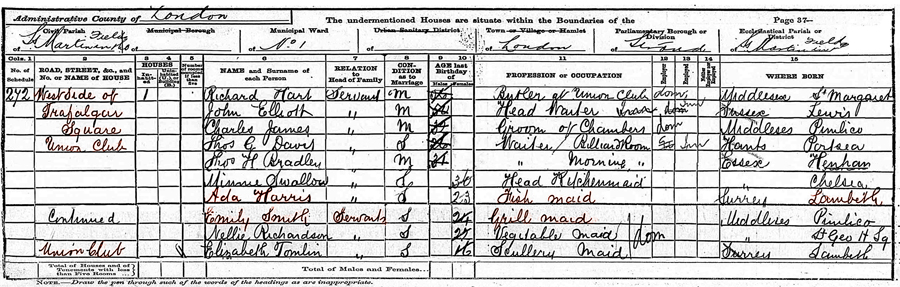 Administrative County of London
The undermentioned Houses are situate within the Boundaries of the
Page 37
Civil Parish of St Martin in the Fields
Municipal Borough of
Municipal Ward of No 1
Urban Sanitary District of
Town or Village or Hamlet of London
Parliamentary Borough or Division of Strand
Ecclesiastical Parish or District of St Martin Fields
Cols. 1 2 3 4 5 6 7 8 9 10 11 12 13 14 15 16
No. of Schedule
ROAD, STREET, &c., and No. or NAME of HOUSE
HOUSES
NAME and Surname of each Person
RELATION to Head of Family
CONDITION as to Marriage
AGE last Birthday of
Males Females
PROFESSION or OCCUPATION
WHERE BORN
272 West side of 1 Richard Hart Servant M Butler at Union Club dom Middlesex St Margaret
Trafalgar John Elliott " M Head Waiter dom Sussex Lewis
Square Charles James " M Groom of Chambers dom Middlesex Pimlico
Union Club Thos G Davis " S Waiter Billiard Room Hants Portsea
Thos H Bradley " M " Morning " Essex Henham
Minnie Swallow " S 30 Head Kitchenmaid " Chelsea
Ada Harris " S 23 Fish maid Surrey Lambeth
Continued Emily Smith Servant S 24 Grill maid Middlesex Pimlico
Nellie Richardson " S Vegetable maid dom " St Geo H Sq
Union Club Elizabeth Tomlin " S 16 Scullery Maid Surrey Lambeth
Total of Houses and of Tenements with less than Five Rooms
Total of Males and Females...
NOTE.—Draw the pen through such of the words of the headings as are inappropriate.